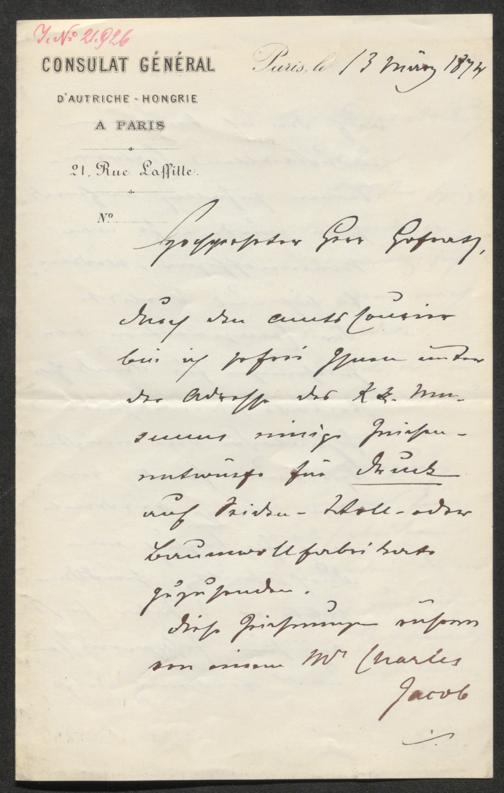 J. No 21.926
CONSULAT GÉNÉRAL
D'AUTRICHE-HONGRIE
A PARIS
21, Rue Laffitte.
No
Paris, le 13 März 1874
Hochgeehrter Herr Hofrath,
durch den Amts Courier
bin ich so frei Ihnen unter
der Adresse des K. K. Mu-
seums einige Zeichen-
entwürfe für Druck
auf Seiden- Woll- oder
Baumwollfabrikate
zuzusenden.
Diese Zeichnungen rühren
von einem Mr Charles
Jacob